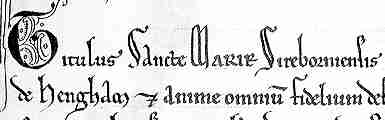 Titulus Sancte MARIE Sireborniensis
de Hengham ⁊ anime omniū fidelium def